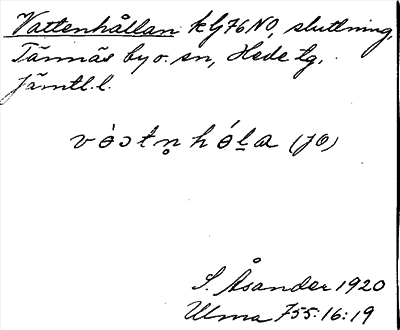 Vattenhållan k G76NO, sluttning,
Tännäs by o. sn, Hede tg,
Jämtl. l.
(JO)
S. Åsander 1920
Ulma 755:16:19